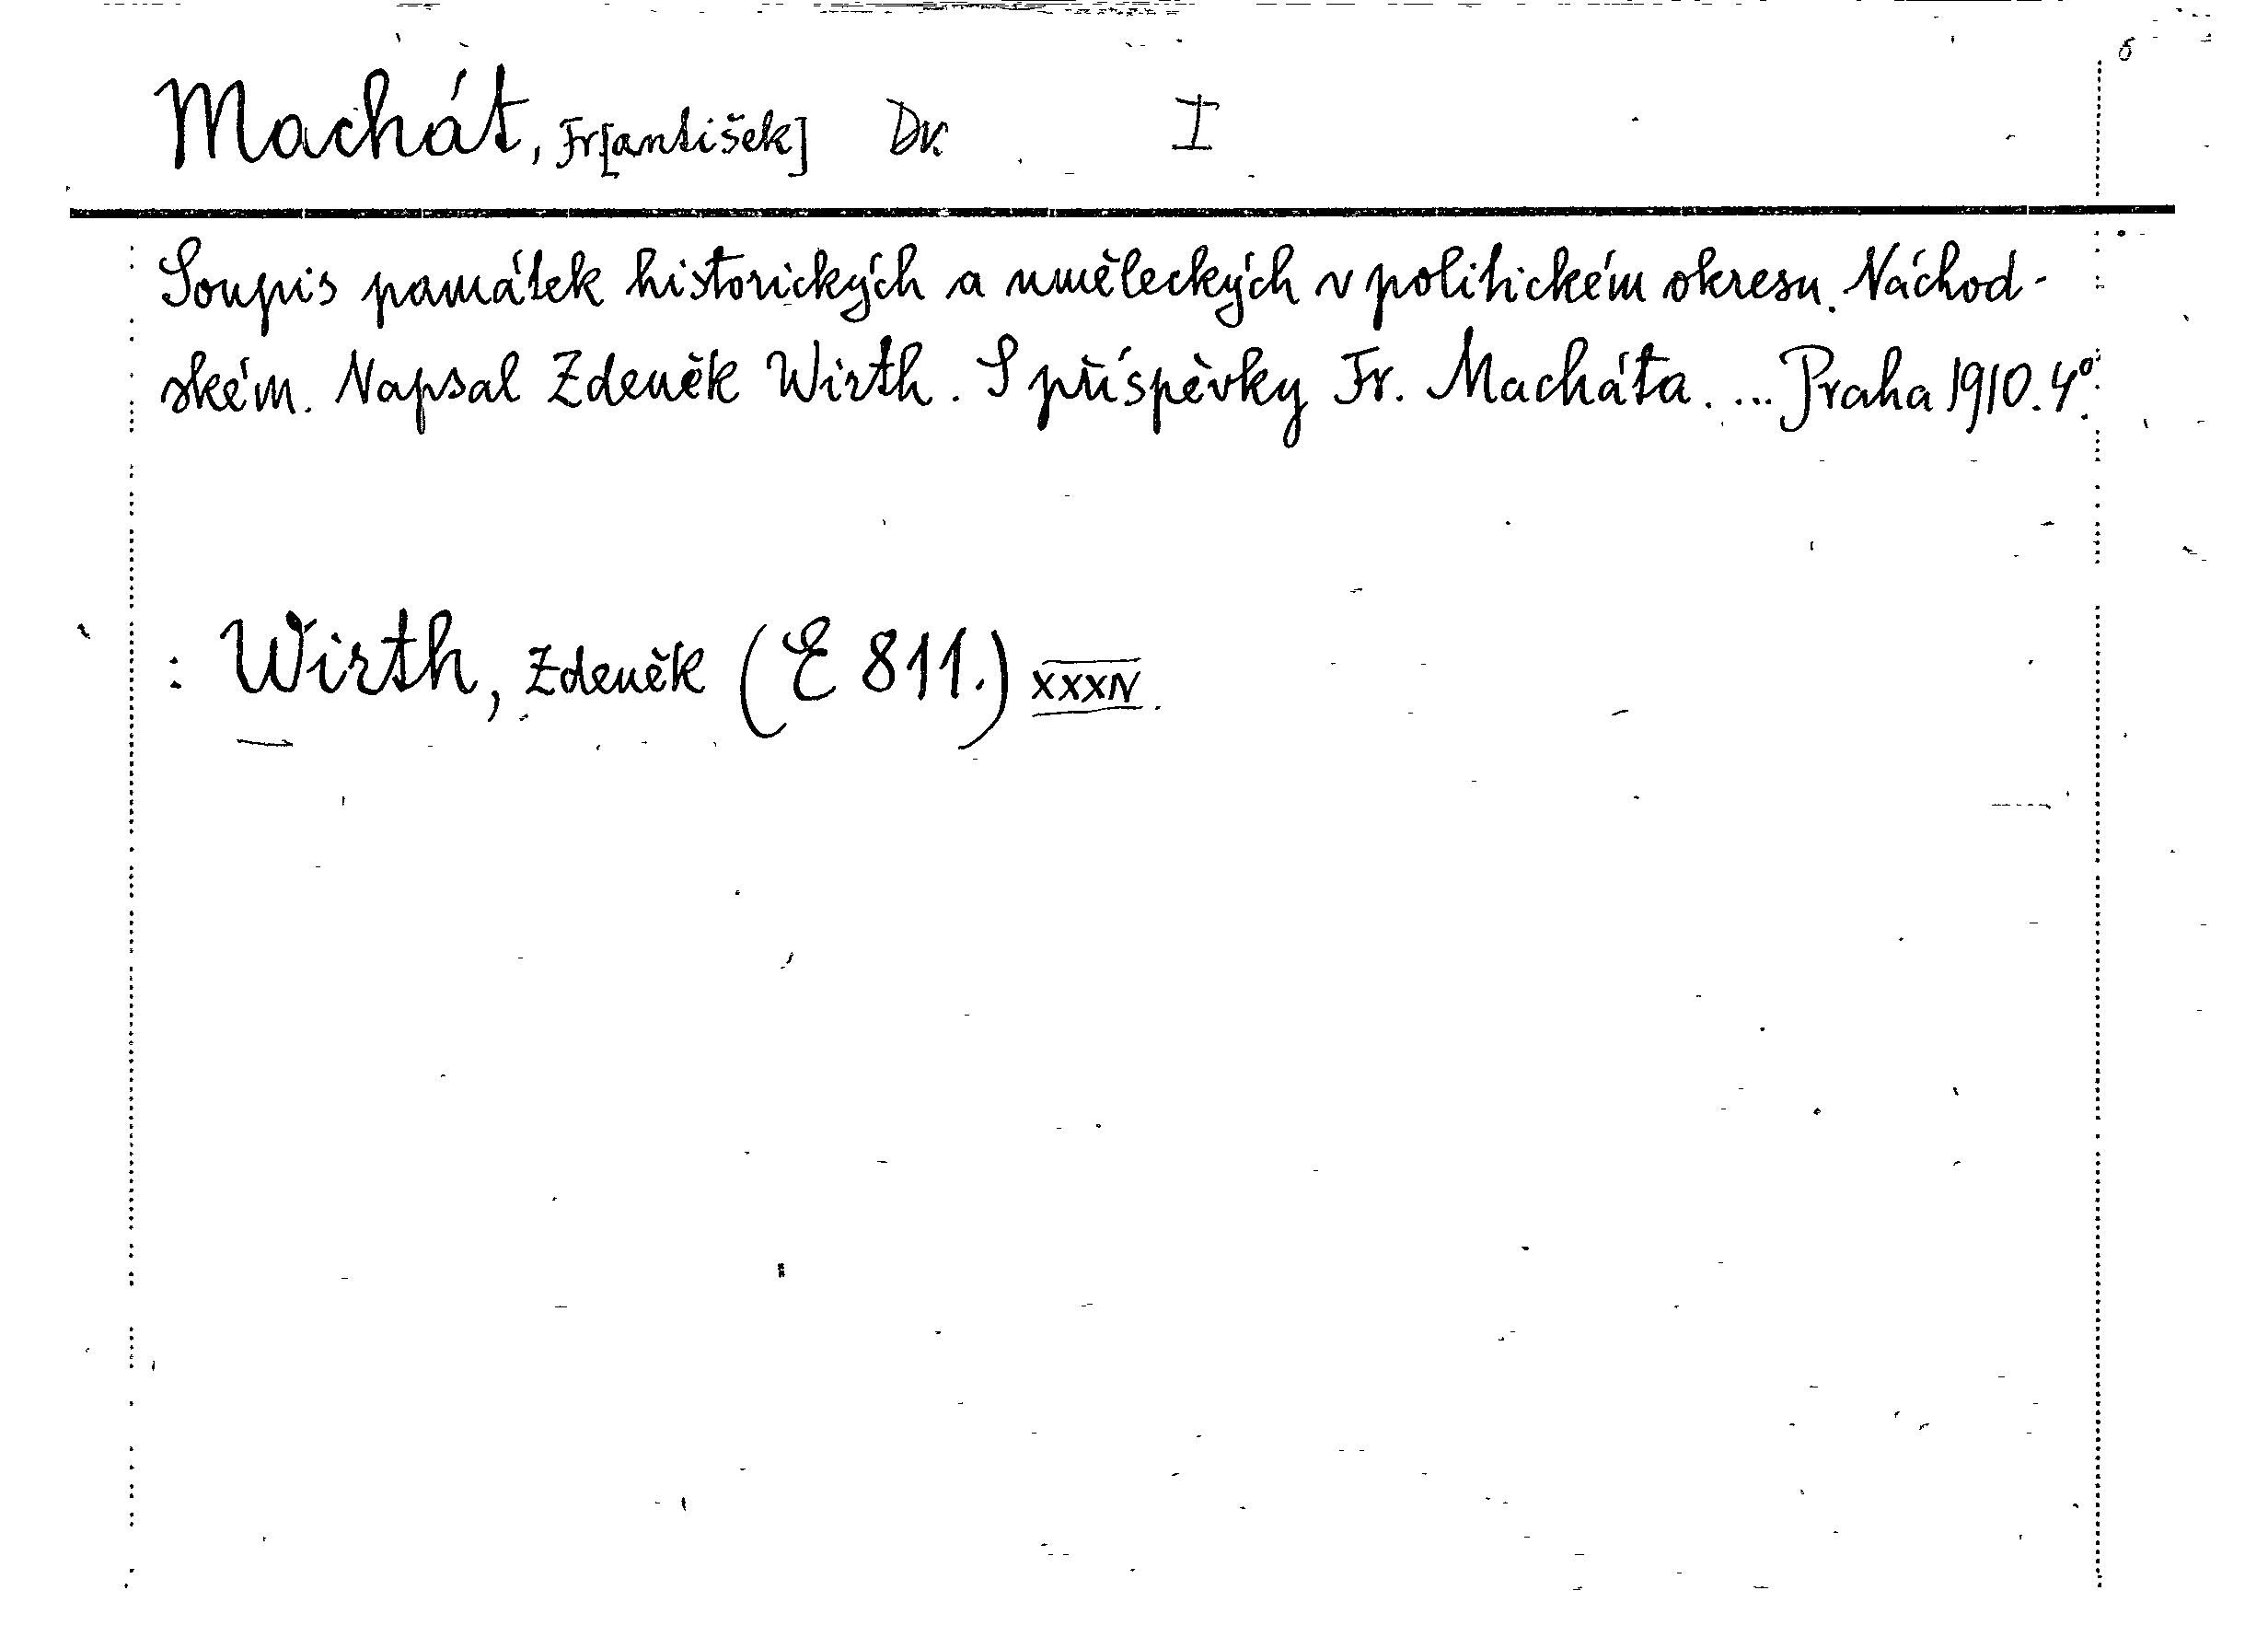 6
Machát, Fr[antišek] Dr. I
Soupis památek historických a uměleckých v politickém okresu Náchod-
ském. Napsal Zdeněk Wirth. S příspěvky Fr. Macháta. ... Praha 1910. 4°.
: Wirth, Zdeněk (E 811.) XXXIV.